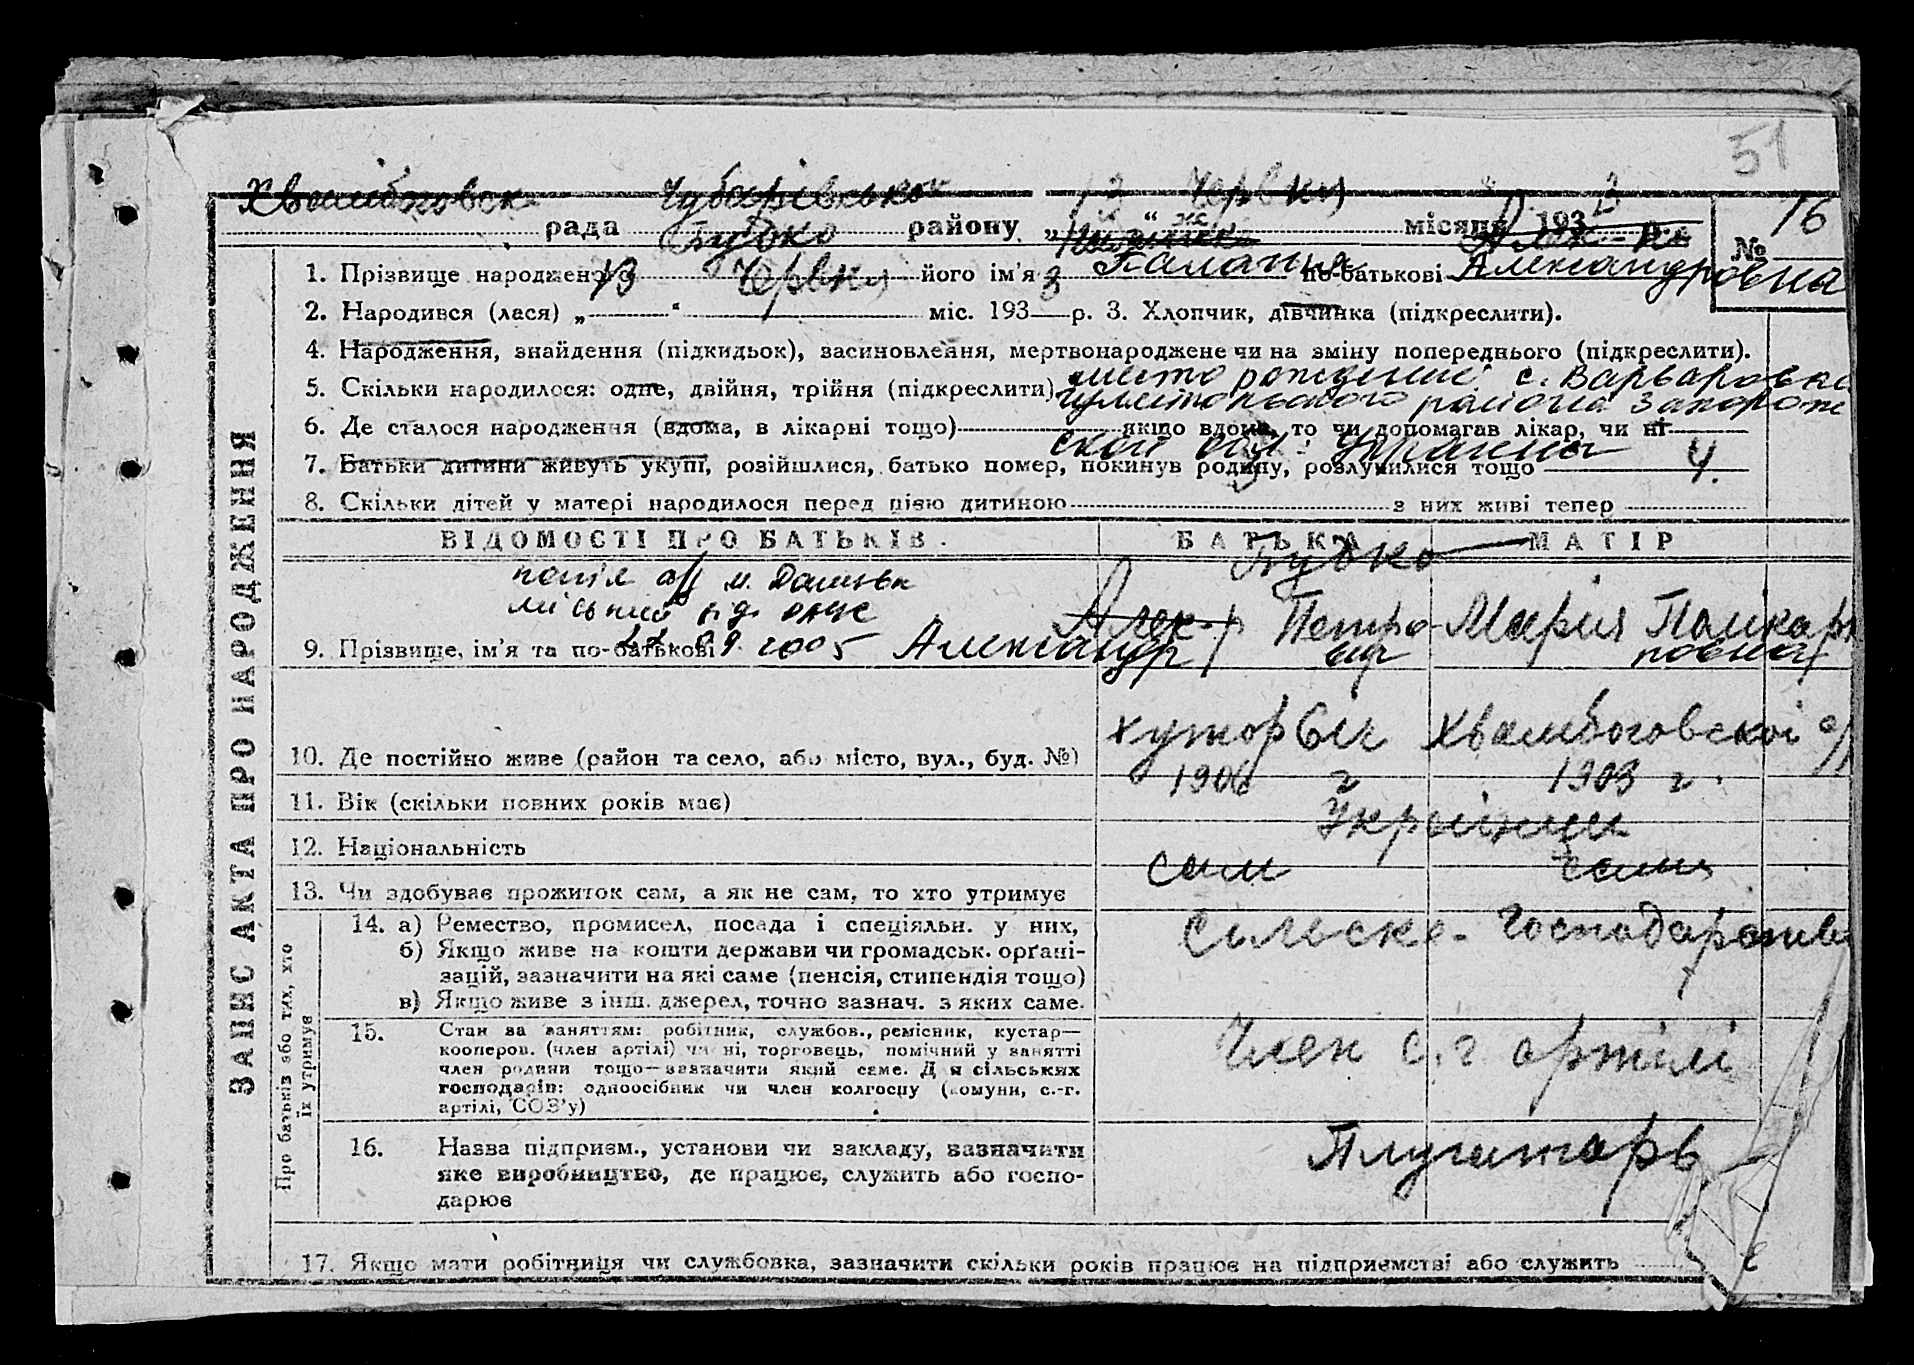 51
Чубарівського 12 Червня 3
рада району „ “ місяця 193 № 16
Будко Алек-на
1. Прізвище народжено його ім'я Палагия по-батькові Александровна
13 Червня 3
2. Народився (лася) „ “ міс. 193 р. 3. Хлопчик, дівчинка (підкреслити).
4. Народження, знайдення (підкидьок), засиновлення, мертвонароджене чи на зміну попереднього (підкреслити).
место рождения с. Варваровка
5. Скільки народилося: одне, двійня, трійня (підкреслити)
района Запорож
6. Де сталося народження (вдома, в лікарні тощо) якщо вдома, то чи допомагав лікар, чи ні
ской обл. Украины
7. Батьки дитини живуть укупі, розійшлися, батько помер, покинув родину, розлучилися тощо
4.
8. Скільки дітей у матері народилося перед цією дитиною з них живі тепер
ВІДОМОСТІ ПРО БАТЬКІВ. БАТЬКА МАТІР
Будко
м.
Алек-р Петро- Мария Поликар
9. Прізвище, ім'я та по-батькові 2005 Александр вич повна
хутор
10. Де постійно живе (район та село, або місто, вул., буд. №)
1906 г 1903 г.
11. Вік (скільки повних років має)
Українці
12. Національність
сам сама
13. Чи здобуває прожиток сам, а як не сам, то хто утримує
14. а) Ремество, промисел, посада і спеціяльн. у них,
Сільске-Господарство
б) Якщо живе на кошти держави чи громадськ. орґані-
зацій, зазначити на які саме (пенсія, стипендія тощо)
в) Якщо живе з інш. джерел, точно зазнач. з яких саме.
15. Стан за заняттям: робітник, службов., ремісник, кустар—
кооперов. (член артілі) чи ні, торговець, помічний у занятті
Член с.г артілі
член родини тощо—зазначити який саме. Для сільських
господарів: одноосібник чи член колгоспу (комуни, с.-г.
артілі, СОЗ'у)
16. Назва підприєм., установи чи закладу, зазначити
Плугатарь
яке виробництво, де працює, служить або госпо-
дарює
17. Якщо мати робітниця чи службовка, зазначити скільки років працює на підприємстві або служить
ЗАПИС АКТА ПРО НАРОДЖЕННЯ
Про батьків або тих, хто
їх утримує